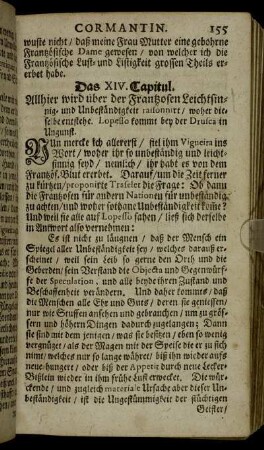 CORMANTIN. 155
wuste nicht / daß meine Frau Mutter eine gebohrne
Frantzösische Dame gewesen / von welcher ich die
Frantzösische Lust- und Listigkeit grossen Theils er-
erbet habe.
Das XIV. Capitul.
Allhier wird über der Frantzosen Leichtsin-
nig- und Unbeständigkeit raisonnirt / woher die-
selbe entstehe. Lopello kommt bey der Druica in
Ungunst.
NUn mercke ich allererst / fiel ihm Vigneira ins
Wort / woher ihr so unbeständig und leicht-
sinnig seyd / nemlich / ihr habt es von dem
Frantzös. Blut ererbet. Darauf / um die Zeit ferner
zu kürtzen / proponirte Trafeler die Frage: Ob dann
die Frantzosen für andern Nationen für unbeständig
zu achten / und woher sothane Unbeständigkeit rühre?
Und weil sie alle auf Lopello sahen / ließ sich derselbe
in Antwort also vernehmen:
Es ist nicht zu läugnen / daß der Mensch ein
Spiegel aller Unbeständigkeit sey / welches daraus er-
scheinet / weil sein Leib so gerne den Orth und die
Geberden / sein Verstand die Objecta und Gegenwürf-
fe der Speculation, und alle beyde ihren Zustand und
Beschaffenheit verändern. Und daher kommts / daß
die Menschen alle Ehr und Gutes / deren sie geniessen /
nur wie Stuffen ansehen und gebrauchen / um zu grös-
sern und höhern Dingen dadurch zugelangen; Dann
sie sind mit dem jenigen / was sie besitzen / eben so wenig
vergnüget / als der Magen mit der Speise die er zu sich
nimt / welches nur so lange währet / biß ihn wieder aufs
neue hungert / oder biß der Appetit durch neue Lecker-
Bißlein wieder in ihm frühe Lust erwecket. Die wür-
ckende / und zugleich materiale Ursache aber dieser Un-
beständigkeit / ist die Ungestümmigkeit der flüchtigen
Geister /